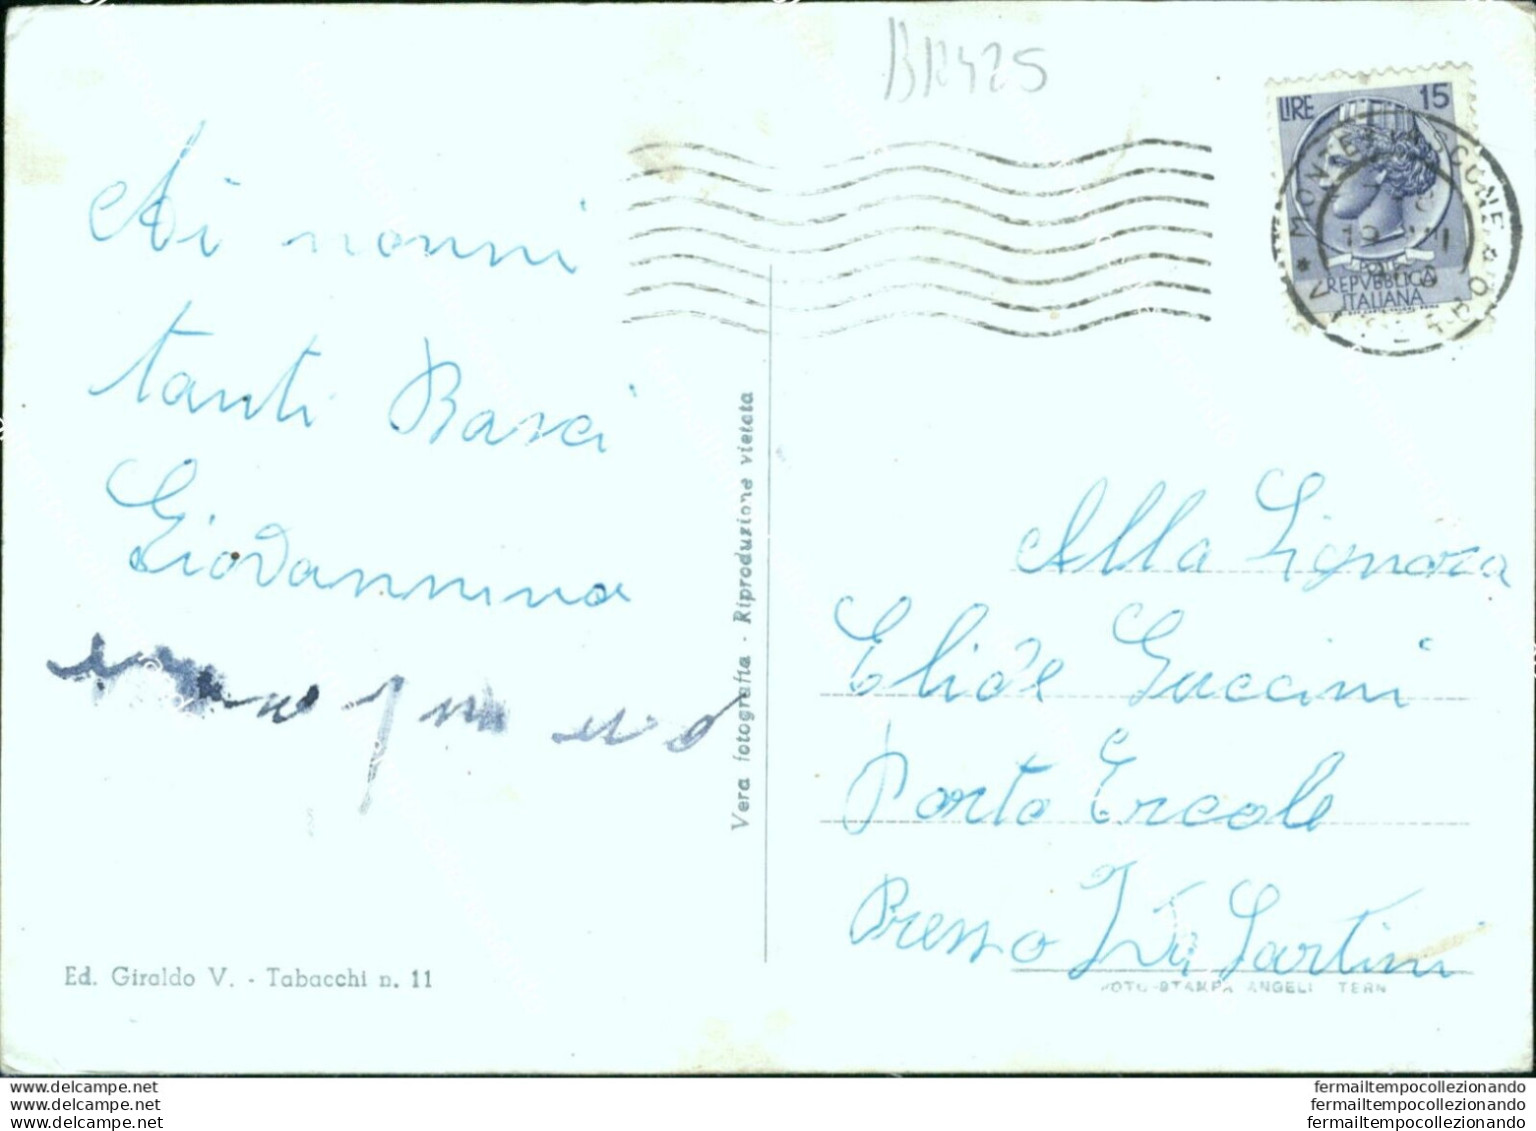 BR425
LIRE 15
REPVBBLICA
ITALIANA
Ai nonni
tanti Basci
Giovannina
Vera fotografia - Riproduzione vietata
Alla Signora
Elide Guccini
Porto Ercole
Presso Ida Sartini
Ed. Giraldo V. - Tabacchi n. 11
FOTO-STAMPA ANGELI TERN
www.delcampe.net
www.delcampe.net
www.delcampe.net
fermailtempocollezionando
fermailtempocollezionando
fermailtempocollezionando